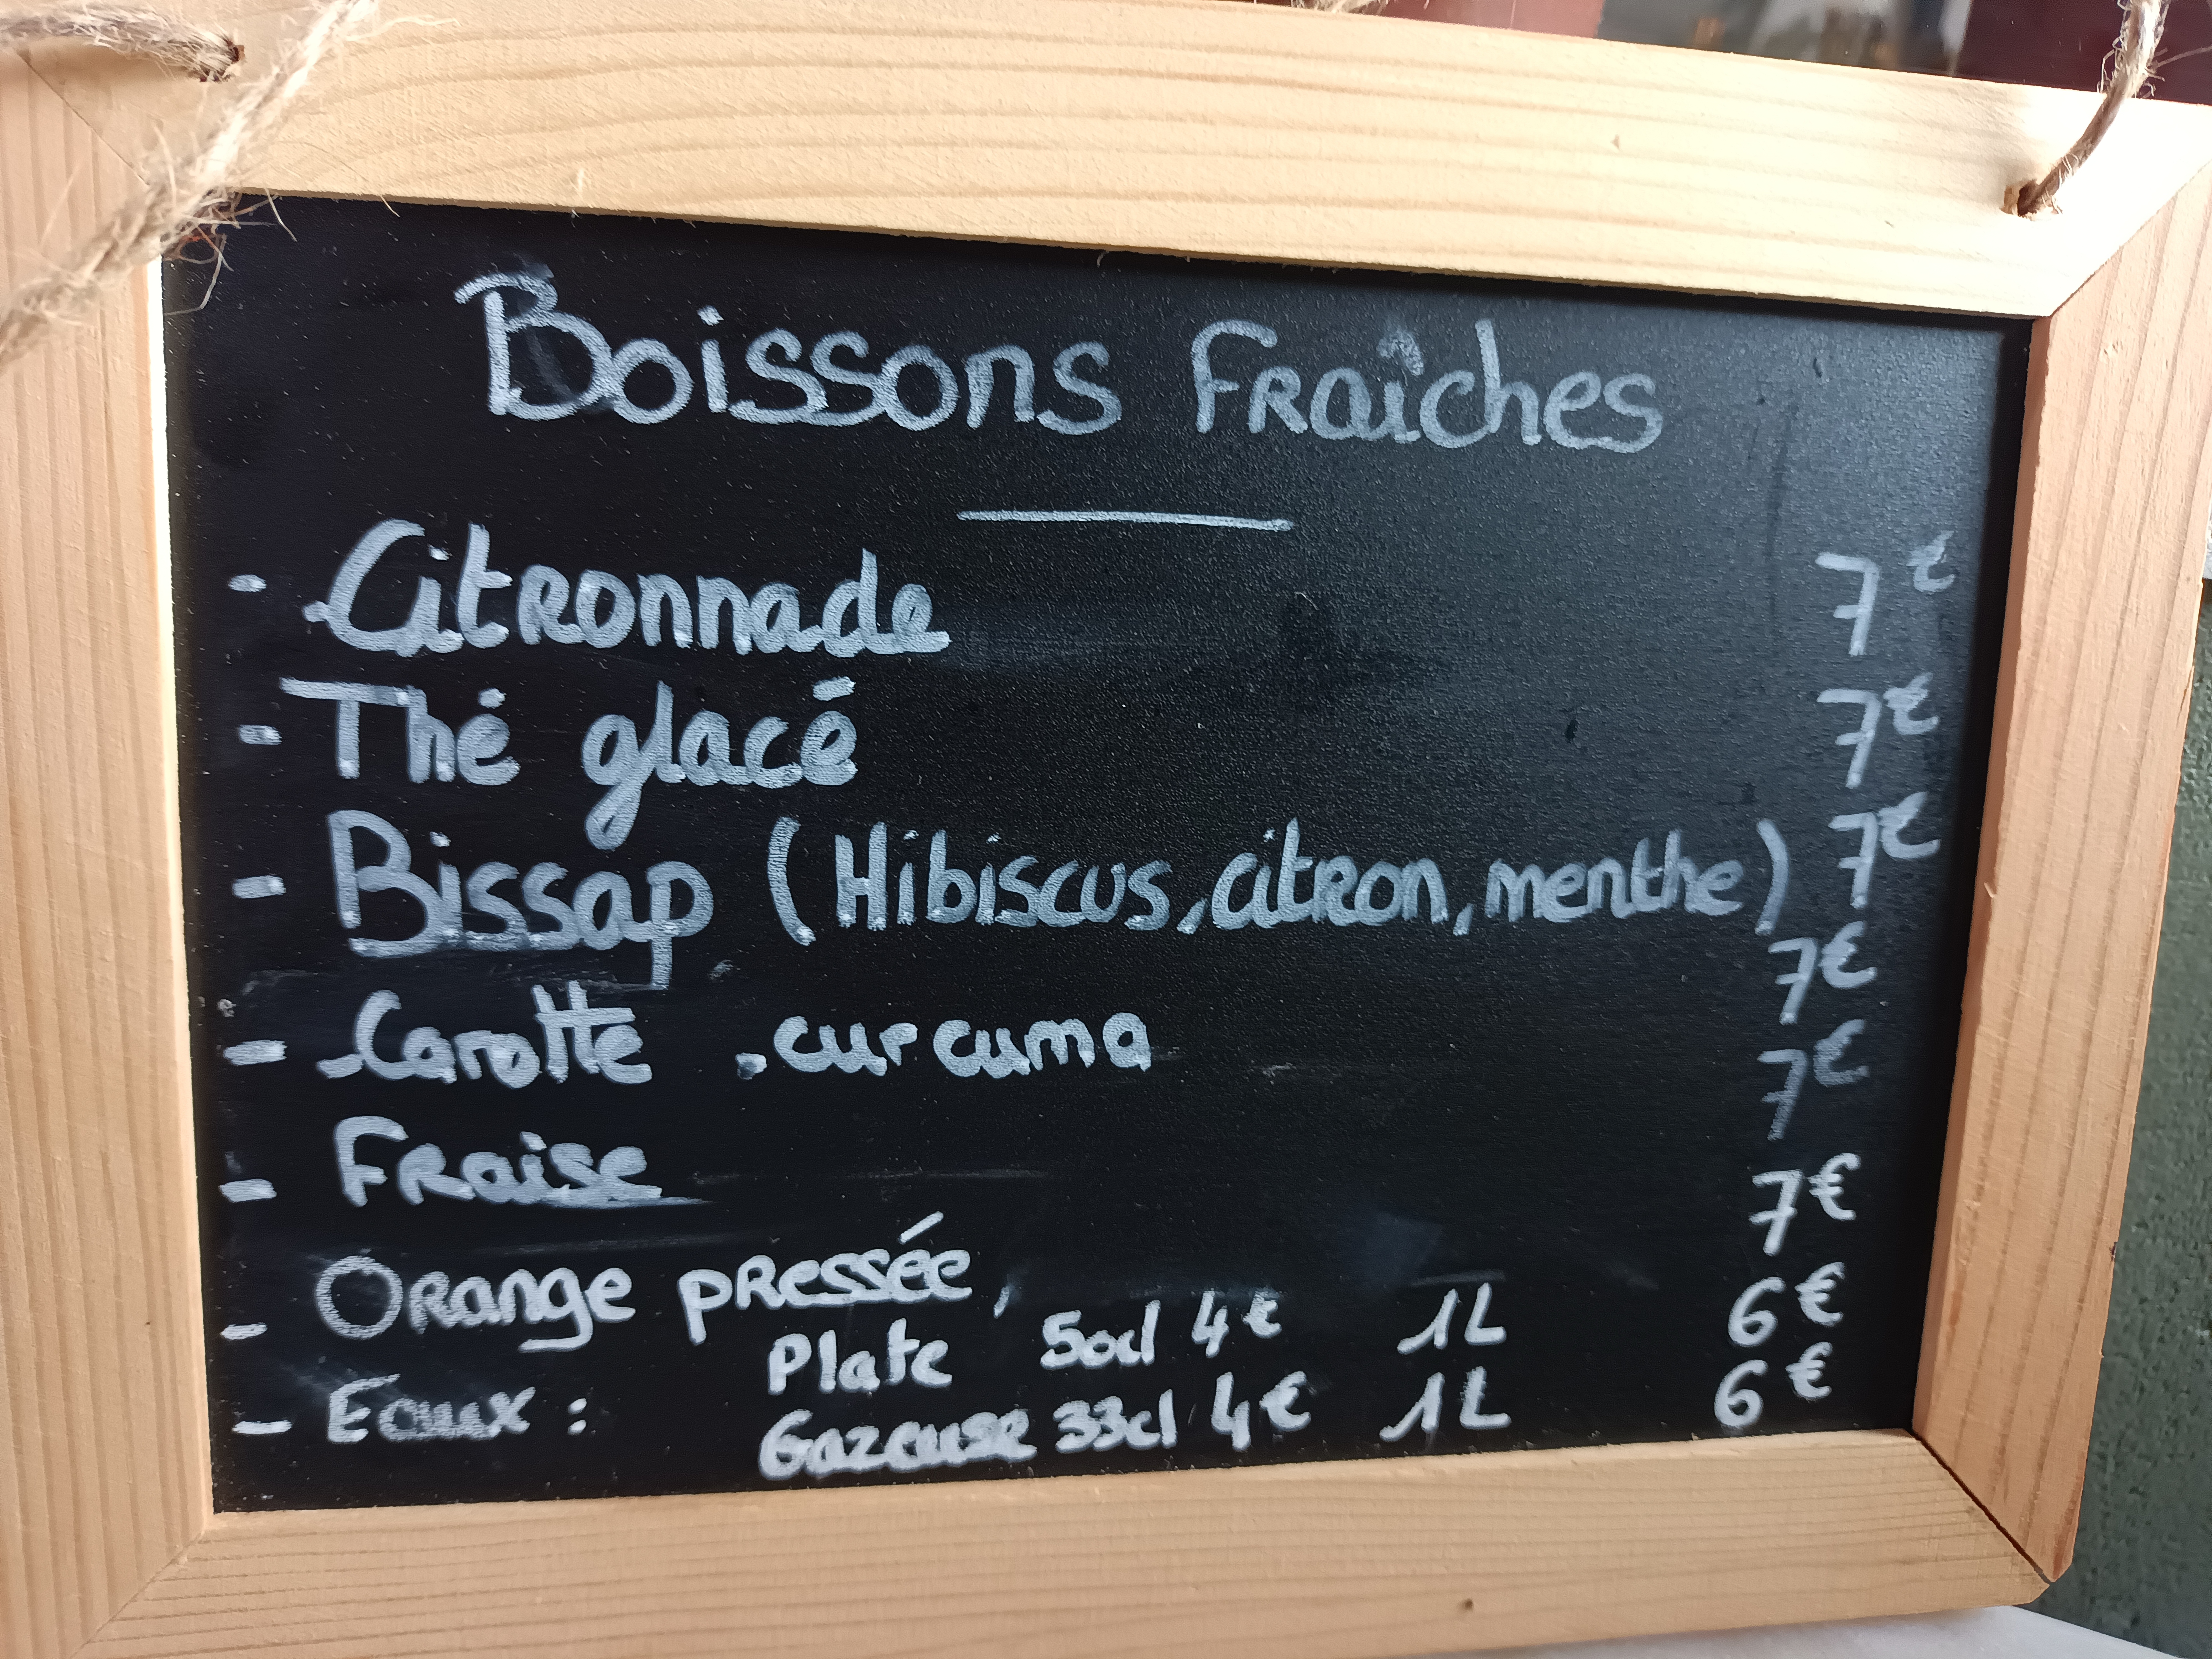 Boissons Fraîches
- Citronnade 7€
- Thé glacé 7€
- Bissap (Hibiscus, citron, menthe) 7€
- Carotte . curcuma 7€
- Fraise 7€
- Orange pressée, 7€
- Eaux : Plate 50cl 4€ 1L 6€
Gazeuse 33cl 4€ 1L 6€